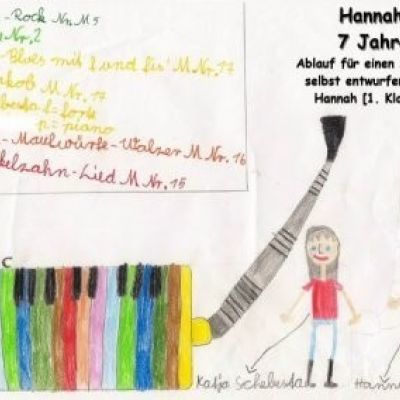 - Rock Nr. M 5
Nr. 2
-Blues mit f und fis' M Nr. 17
akob M Nr. 17
f = forte
p = piano
- Maulwürfe-Walzer M Nr. 16
kelzahn-Lied M Nr. 15
Hannah
7 Jahre
Ablauf für einen
selbst entwurfen
Hannah [1. Kla
C
Katja Schebesta
Hann